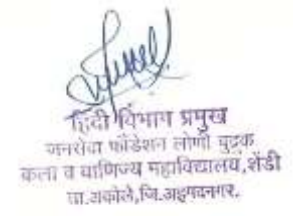 हिंदी विभाग प्रमुख
जनसेवा फौंडेशन लोणी बुद्रुक
कला व वाणिज्य महाविद्यालय, शेंडी
ता.अकोले,जि.अहमदनगर.